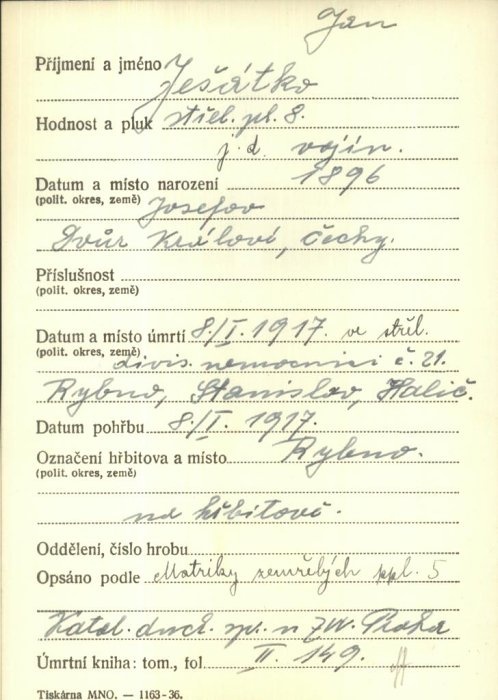 Jan
Příjmení a jméno Ješátko
Hodnost a pluk střel. pl. 8.
j. d. vojín.
Datum a místo narození 1896
(polit. okres, země) Josefov
Dvůr Králové, Čechy.
Příslušnost
(polit. okres, země)
Datum a místo úmrtí 8./I. 1917. ve střel.
(polit. okres, země) divis. nemocnici č. 21.
Rybno, Stanislav, Halič.
Datum pohřbu 8./I. 1917.
Označení hřbitova a místo Rybno.
(polit. okres, země)
na hřbitově.
Oddělení, číslo hrobu
Opsáno podle Matriky zemřelých ppl. 5
Katol. duch. sp. Praha
Úmrtní kniha: tom., fol. II. 149.
Tiskárna MNO. — 1163-36.